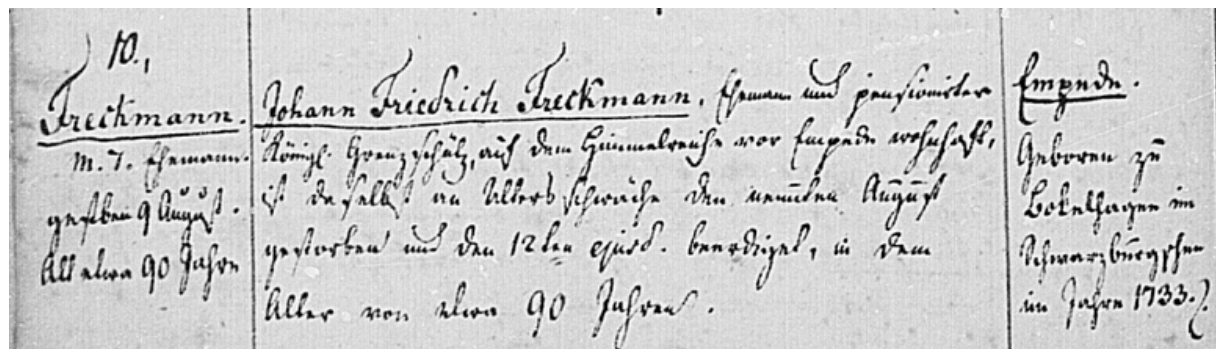 10.,
Freckmann.
M. 7. Ehemann.
gestben 9 August.
Alt etwa 90 Jahre
Johann Friedrich Freckmann, Ehemann und pensionirter
Königl. Grenzschütz, auf dem Himmelreiche vor Empede wohnhaft,
ist daselbst an Altersschwäche den neunten August
gestorben und den 12ten ejusd. beerdiget, in dem
Alter von etwa 90 Jahren.
Empede.
Geboren zu
Bokelhagen im
Schwarzburgschen
im Jahre 1733.